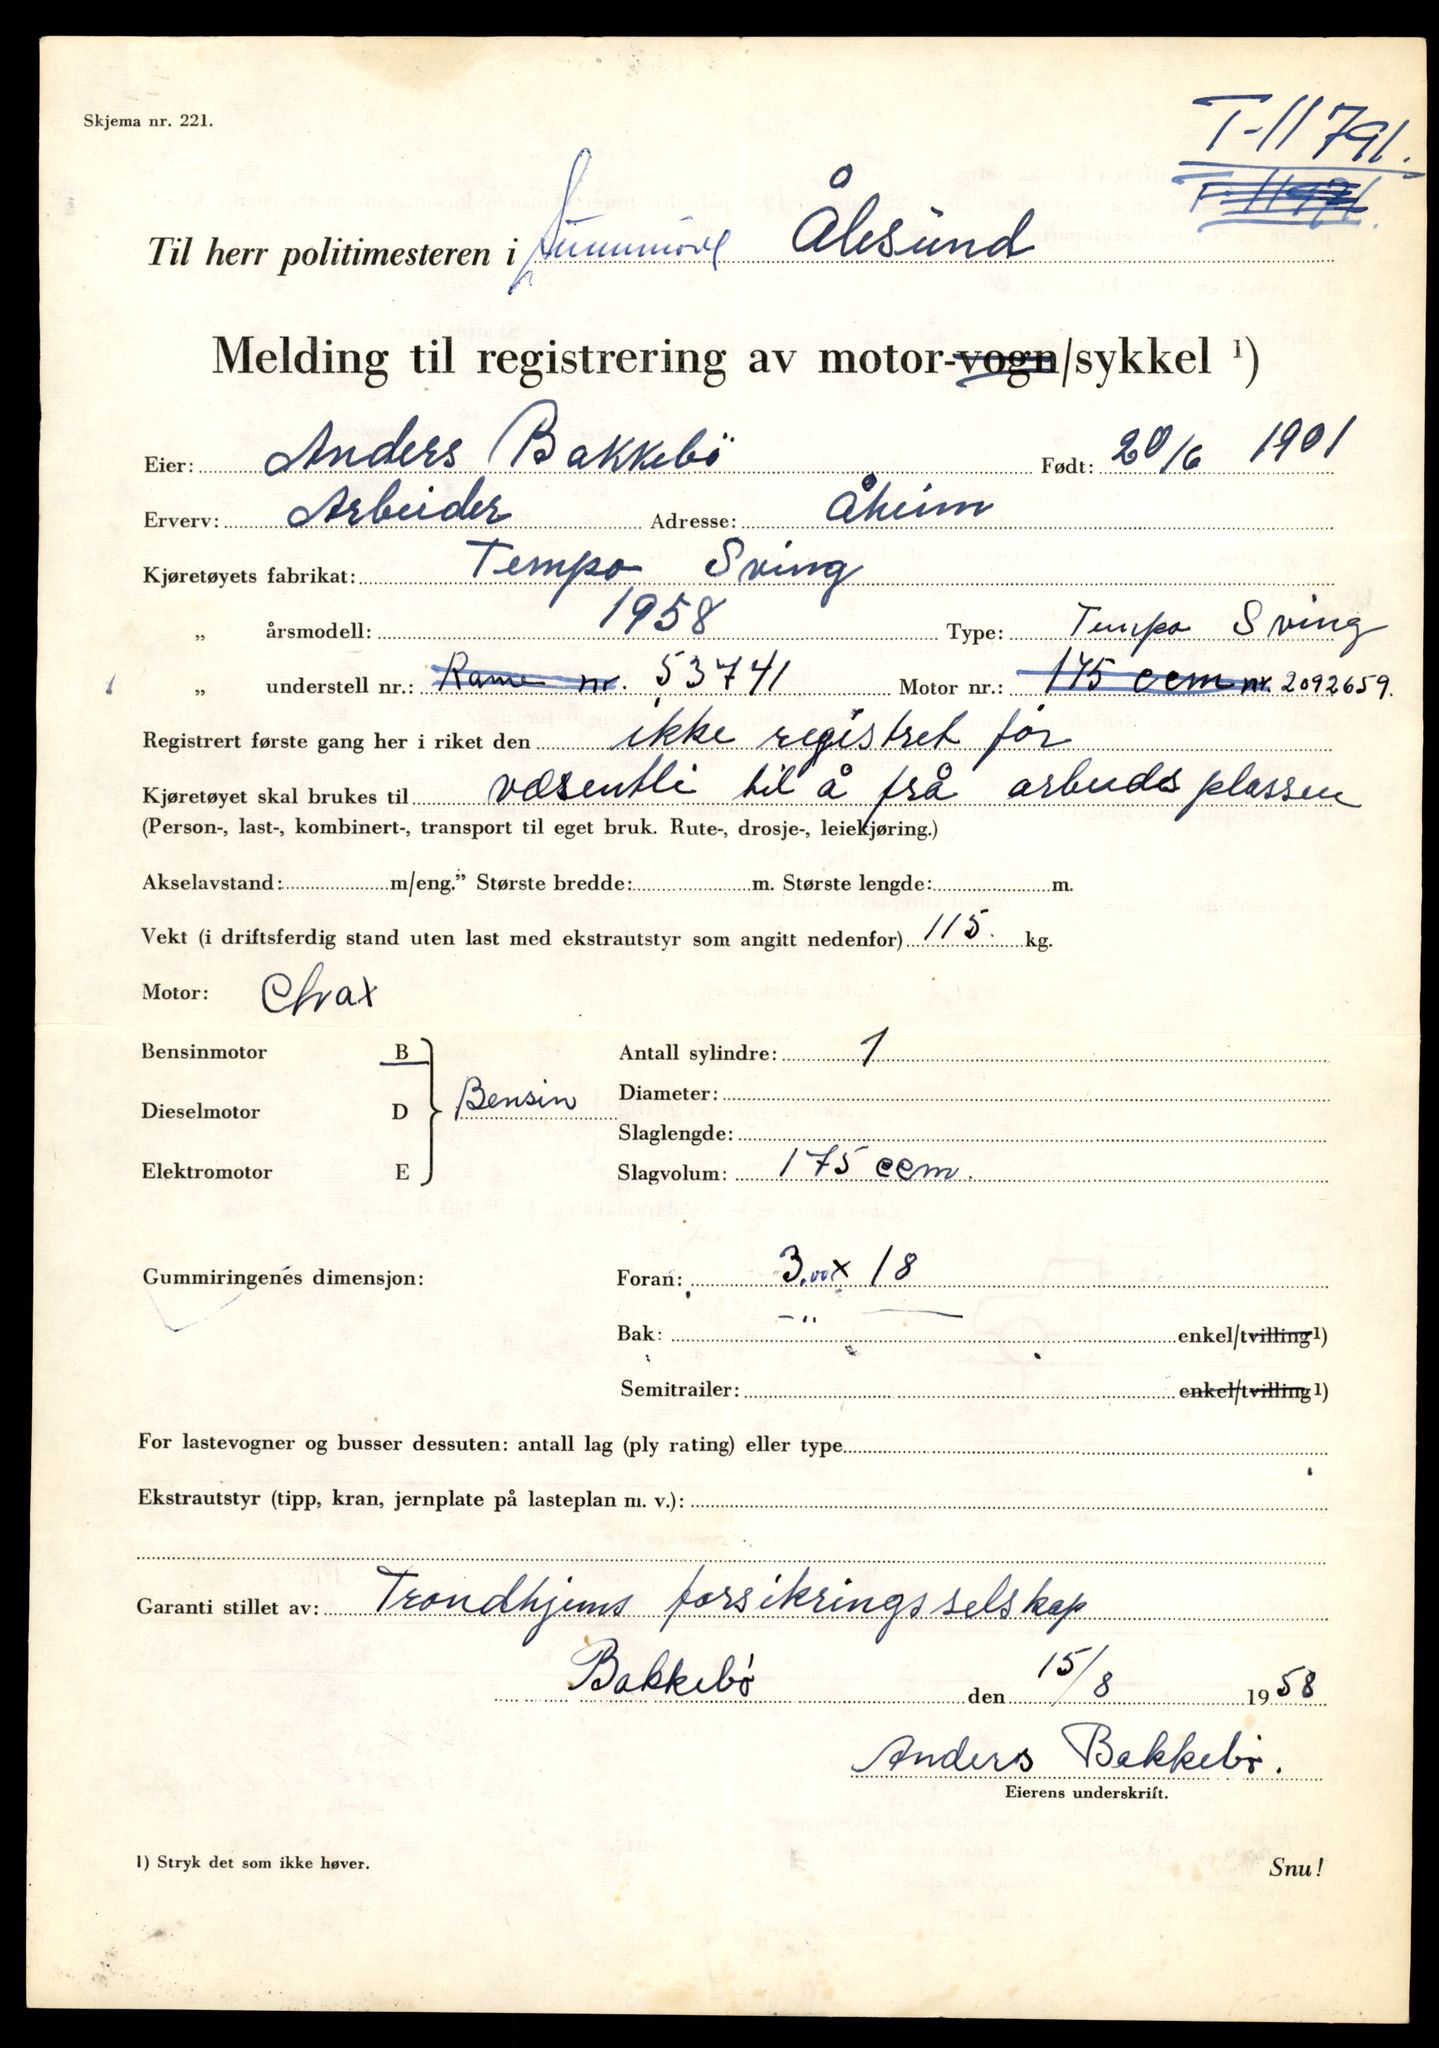 Skjema nr. 221.
T-11791.
Til herr politimesteren i Sunnmøre Ålesund
Melding til registrering av motor-vogn/sykkel 1)
Eier: Anders Bakkebö Født: 20/6 1901
Erverv: Arbeider Adresse: Åheim
Kjøretøyets fabrikat: Tempo Sving
„ årsmodell: 1958 Type: Tempo Sving
„ understell nr.: Rame nr. 53741 Motor nr.: 175 ccm nr. 2092659.
Registrert første gang her i riket den ikke registret før
Kjøretøyet skal brukes til væsentli til å frå arbeids plassen
(Person-, last-, kombinert-, transport til eget bruk. Rute-, drosje-, leiekjøring.)
Akselavstand: m/eng.” Største bredde: m. Største lengde: m.
Vekt (i driftsferdig stand uten last med ekstrautstyr som angitt nedenfor) 115. kg.
Motor:
Bensinmotor B Antall sylindre: 1
Diameter:
Dieselmotor D Bensin
Slaglengde:
Elektromotor E Slagvolum: 175 ccm.
Gummiringenes dimensjon: Foran: 3.00 x 18
Bak: -„- enkel/tvilling 1)
Semitrailer: enkel/tvilling 1)
For lastevogner og busser dessuten: antall lag (ply rating) eller type
Ekstrautstyr (tipp, kran, jernplate på lasteplan m. v.):
Garanti stillet av: Trondhjems forsikringsselskap
Bakkebø den 15/8 1958
Anders Bakkebø.
Eierens underskrift.
1) Stryk det som ikke høver.
Snu!